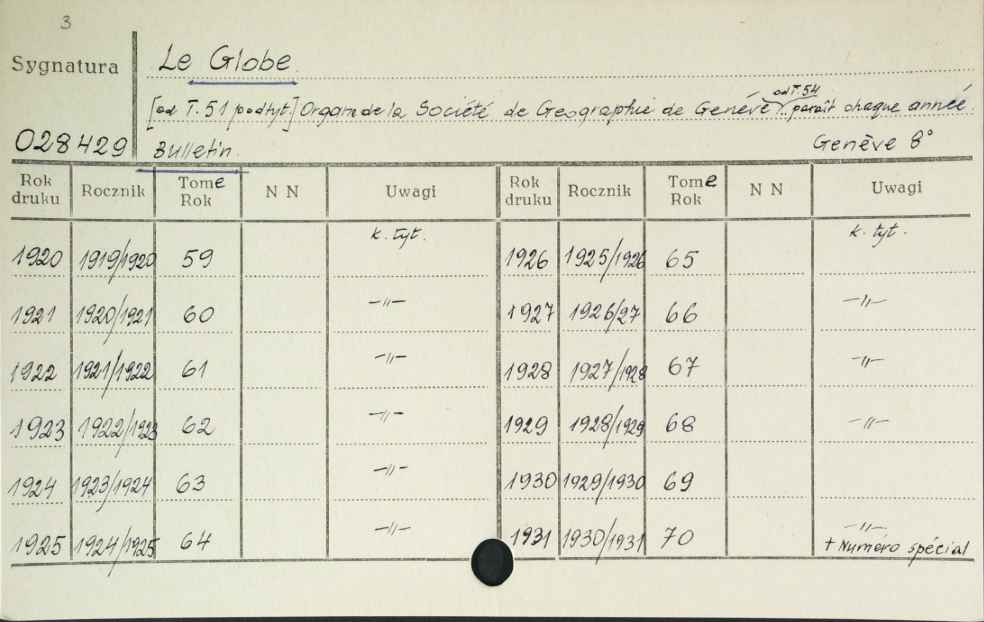 3
Sygnatura
Le Globe.
[od T. 51 podtyt.] Organe de la Société de Geographie de Genève od T. 54 ... paraît chaque année.
028429 Bulletin. Genève 8°
Rok druku Rocznik Tome Rok N N Uwagi Rok druku Rocznik Tome Rok N N Uwagi
k. tyt. k. tyt.
1920 1919/1920 59 1926 1925/1926 65
1921 1920/1921 60 —〃— 1927 1926/27 66 —〃—
1922 1921/1922 61 —〃— 1928 1927/1928 67 —〃—
1923 1922/1923 62 —〃— 1929 1928/1929 68 —〃—
1924 1923/1924 63 —〃— 1930 1929/1930 69
1925 1924/1925 64 —〃— 1931 1930/1931 70 —〃—
+ Numéro spécial